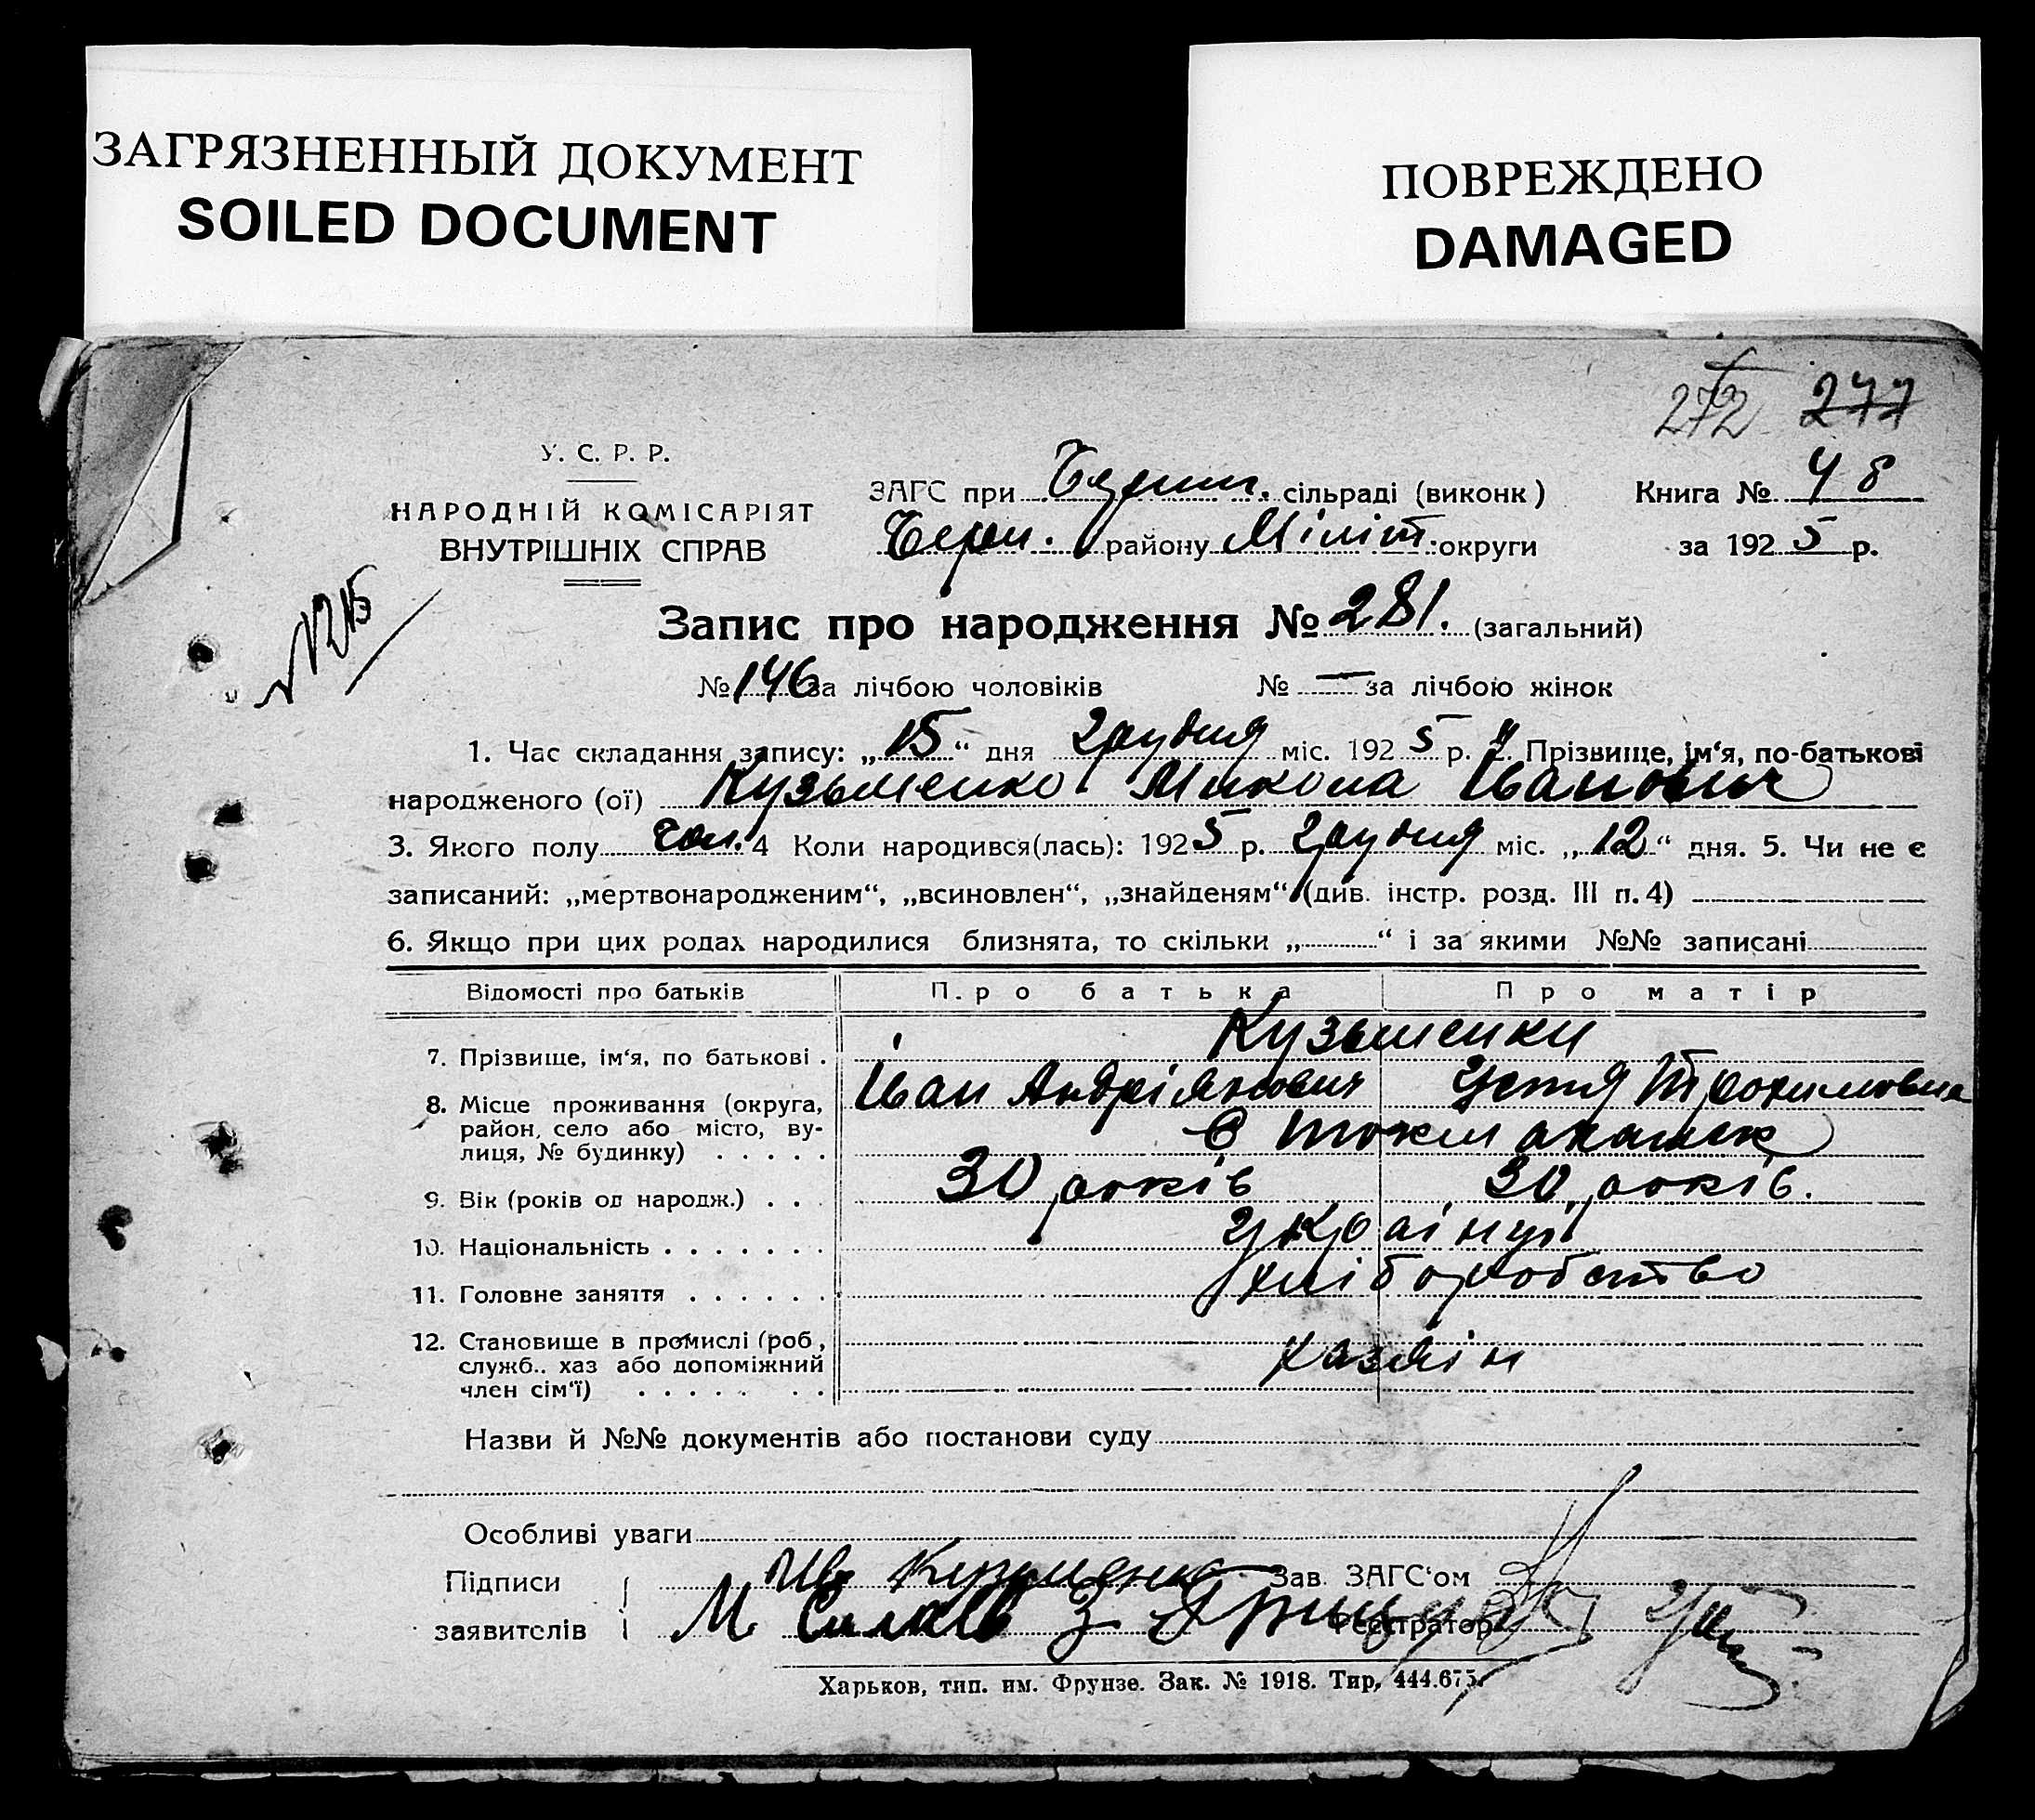 ЗАГРЯЗНЕННЫЙ ДОКУМЕНТ
SOILED DOCUMENT
ПОВРЕЖДЕНО
DAMAGED
272 277
У. С. Р. Р.
НАРОДНІЙ КОМІСАРІЯТ
ВНУТРІШНІХ СПРАВ
ЗАГС при сільраді (виконк)
Берд. району Меліт. округи
Книга № 48
за 1925 р.
№ 1215
Запис про народження № 281. (загальний)
№ 146 за лічбою чоловіків № — за лічбою жінок
1. Час складання запису: „15“ дня Грудня міс. 1925 р. 2. Прізвище, ім‘я, по-батькові
народженого (ої) Кузьменко Микола Іванович
3. Якого полу чол. 4 Коли народився(лась): 1925 р. Грудня міс. „12“ дня. 5. Чи не є
записаний: „мертвонародженим“, „всиновлен“, „знайденям“ (див. інстр. розд. III п. 4)
6. Якщо при цих родах народилися близнята, то скільки „ “ і за якими №№ записані
Відомості про батьків Про батька Про матір
7. Прізвище, ім‘я, по батькові . Кузьменки
Іван Андріянович Устя Трохимовна
8. Місце проживання (округа,
район, село або місто, ву-
лиця, № будинку) . . . . .
9. Вік (років од народж.) . . . 30 років 30 років.
10. Національність . . . . . . . Україньці
11. Головне заняття . . . . . . хліборобство
12. Становище в промислі (роб,
служб.. хаз або допоміжний
член сім‘ї) . . . . . . . хазяїн
Назви й №№ документів або постанови суду
Особливі уваги
Підписи
заявителів
Ив Кузьменко
Зав. ЗАГС‘ом
Реєстратор
Харьков, тип. им. Фрунзе. Зак. № 1918. Тир. 444.675.